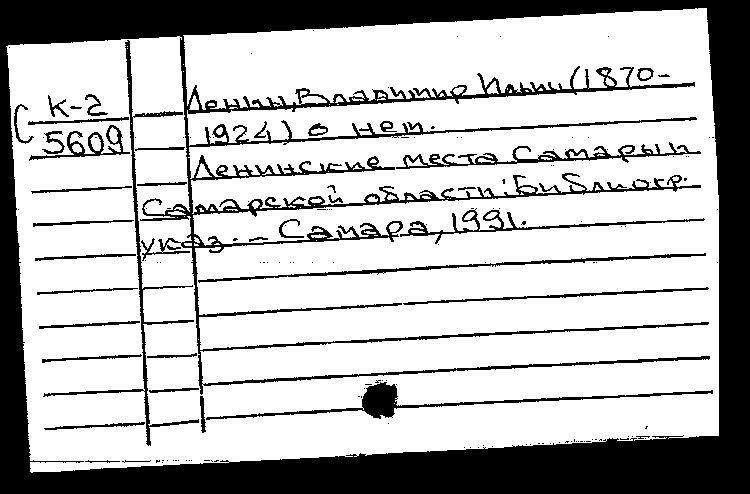 С К-2
5609
Ленин, Владимир Ильич (1870-
1924) о нем.
Ленинские места Самары и
Самарской области: Библиогр.
указ. - Самара, 1991.